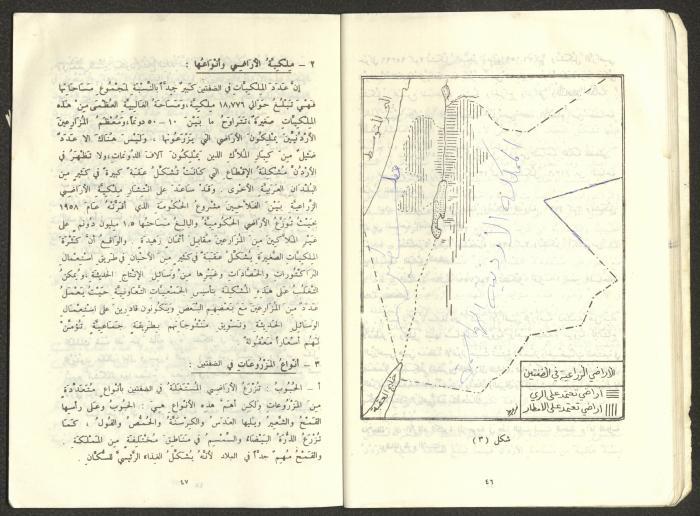 البحر المتوسط
المملكة الأردنية الهاشمية
خليج العقبة
الأراضي الزراعية في الضفتين
أراضي تعتمد على الري
أراضي تعتمد على الأمطار
شكل (٣)
٤٦
٢ – ملكيّة الأراضي وأنواعها :
إنّ عدد الملكيات في الضفتين كبير جداً بالنسبة لمجموع مساحاتها
فهي تبلغ حوالي ١٨,٧٧٩ ملكية، ومساحة الغالبية العظمى من هذه
الملكيات صغيرة، تتراوح ما بين ١٠ – ٥٠ دونماً، ومعظم المزارعين
الأردنيين يملكون الأراضي التي يزرعونها ، وليس هناك الا عدد
ضئيل من كبار الملاك الذين يملكون آلاف الدونمات، ولا تظهر في
الأردن مشكلة الإقطاع التي كانت تشكل عقبة كبيرة في كثير من
البلدان العربية الأخرى . وقد ساعد على انتشار ملكية الأراضي
الزراعية بين الفلاحين مشروع الحكومة الذي أقرته عام ١٩٥٨
بحيث توزع الأراضي الحكومية والبالغ مساحتها ١,٥ مليون دونم ، على
غير الملاكين من المزارعين مقابل أثمان زهيدة . والواقع أن كثرة
الملكيات الصغيرة يشكل عقبة في كثير من الأحيان في طريق استعمال
التراكتورات والحصادات وغيرها من وسائل الإنتاج الحديثة ، ويمكن
التغلب على هذه المشكلة بتأسيس الجمعيات التعاونية حيث يعمل
عدد من المزارعين مع بعضهم البعض ويكونون قادرين على استعمال
الوسائل الحديثة وتسويق منتوجاتهم بطريقة جماعية تؤمن
لهم أسعاراً معقولة.
٣ – أنواع المزروعات في الضفتين :
أ – الحبوب : تزرع الأراضي المستغلة في الضفتين بأنواع متعددة
من المزروعات ولكن أهم هذه الأنواع هي : الحبوب وعلى رأسها
القمح والشعير ويليها العدس والكرسنة والحمص والفول ، كما
تزرع الذرة البيضاء والسمسم في مناطق مختلفة من المملكة .
والقمح مهم جداً في البلاد لأنه يشكل الغذاء الرئيسي للسكان .
٤٧